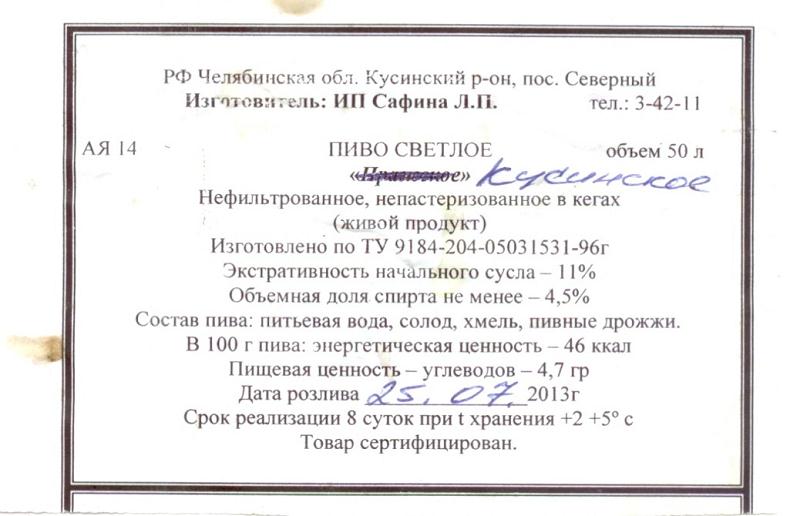 РФ Челябинская обл. Кусинский р-он, пос. Северный
Изготовитель: ИП Сафина Л.П. тел.: 3-42-11
АЯ 14 ПИВО СВЕТЛОЕ объем 50 л
«Пражское» Кусинское
Нефильтрованное, непастеризованное в кегах
(живой продукт)
Изготовлено по ТУ 9184-204-05031531-96г
Экстративность начального сусла – 11%
Объемная доля спирта не менее – 4,5%
Состав пива: питьевая вода, солод, хмель, пивные дрожжи.
В 100 г пива: энергетическая ценность – 46 ккал
Пищевая ценность – углеводов – 4,7 гр
Дата розлива 25. 07. 2013г
Срок реализации 8 суток при t хранения +2 +5º с
Товар сертифицирован.